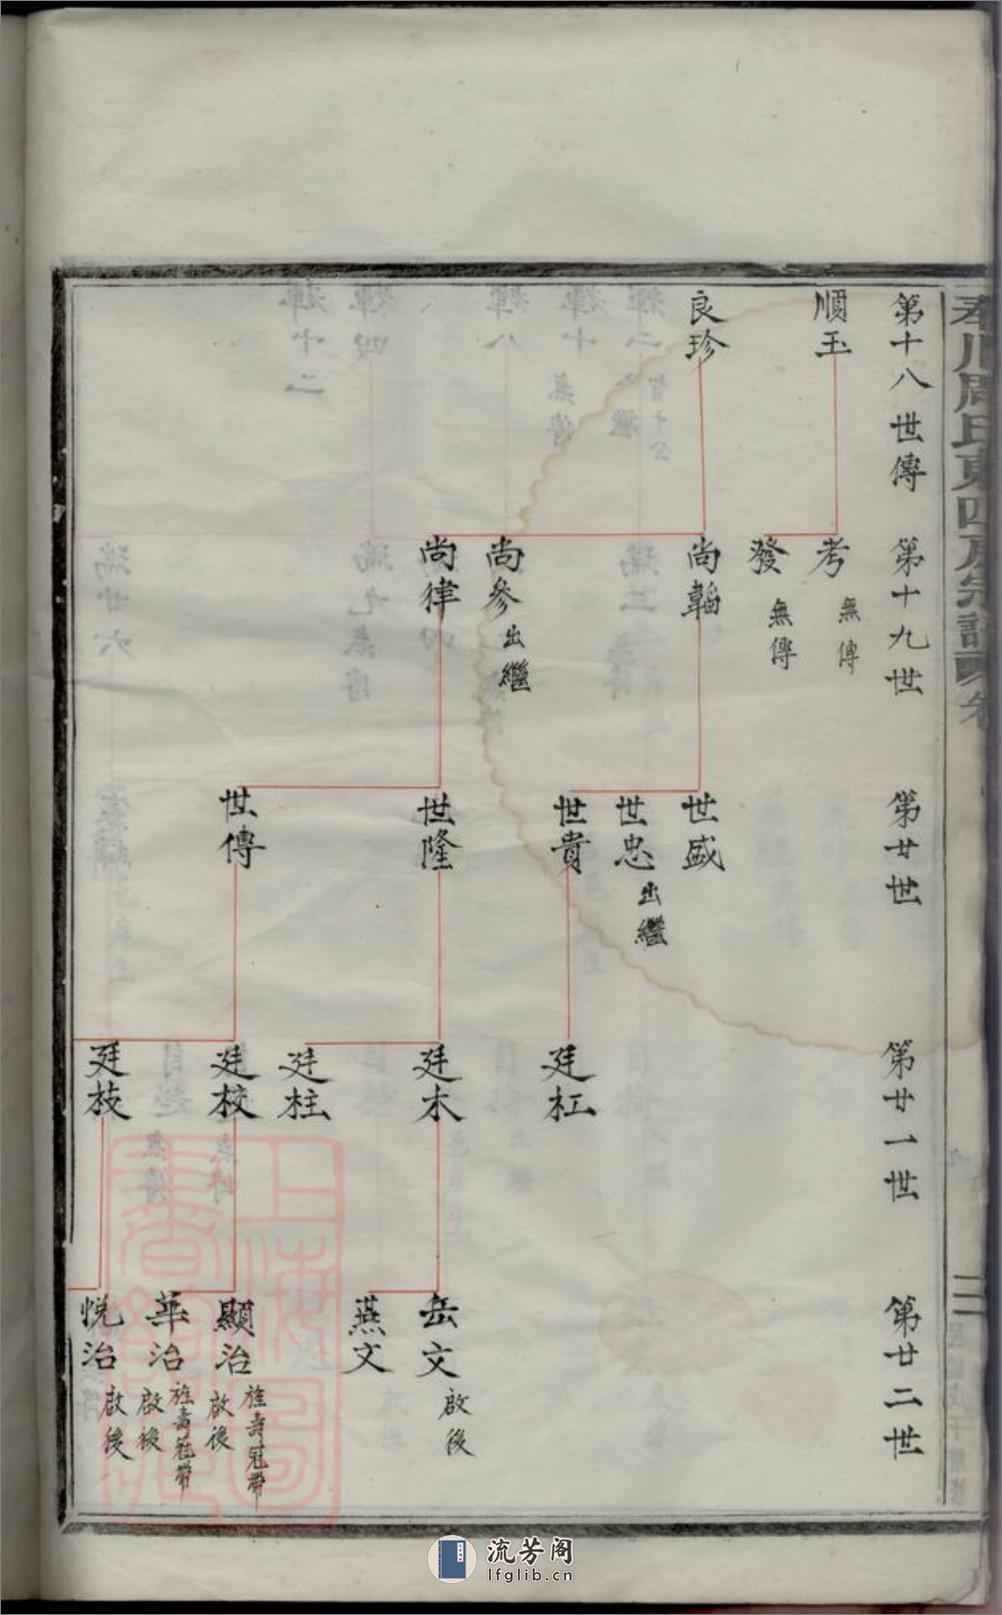 奉川周氏東四房宗譜
第十八世傳
順玉
良珍
第十九世
考 無傳
發 無傳
尚韜
尚參 出繼
尚律
第廿世
世盛
世忠 出繼
世貴
世隆
世傳
第廿一世
廷杠
廷木
廷柱
廷校
廷枝
第廿二世
岳文 啟後
燕文
顯治 旌壽冠帶 啟後
華治 旌壽冠帶 啟後
悅治 啟後
上海圖書館藏
流芳阁
lfglib.cn